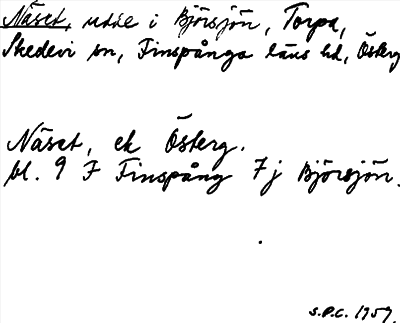 Näset, udde i Björsjön, Torpa,
Skedevi sn, Finspånga läns hd, Österg
Näset, ek Österg.
bl. 9 F Finspång 7j Björsjön.
S.P.C. 1959.